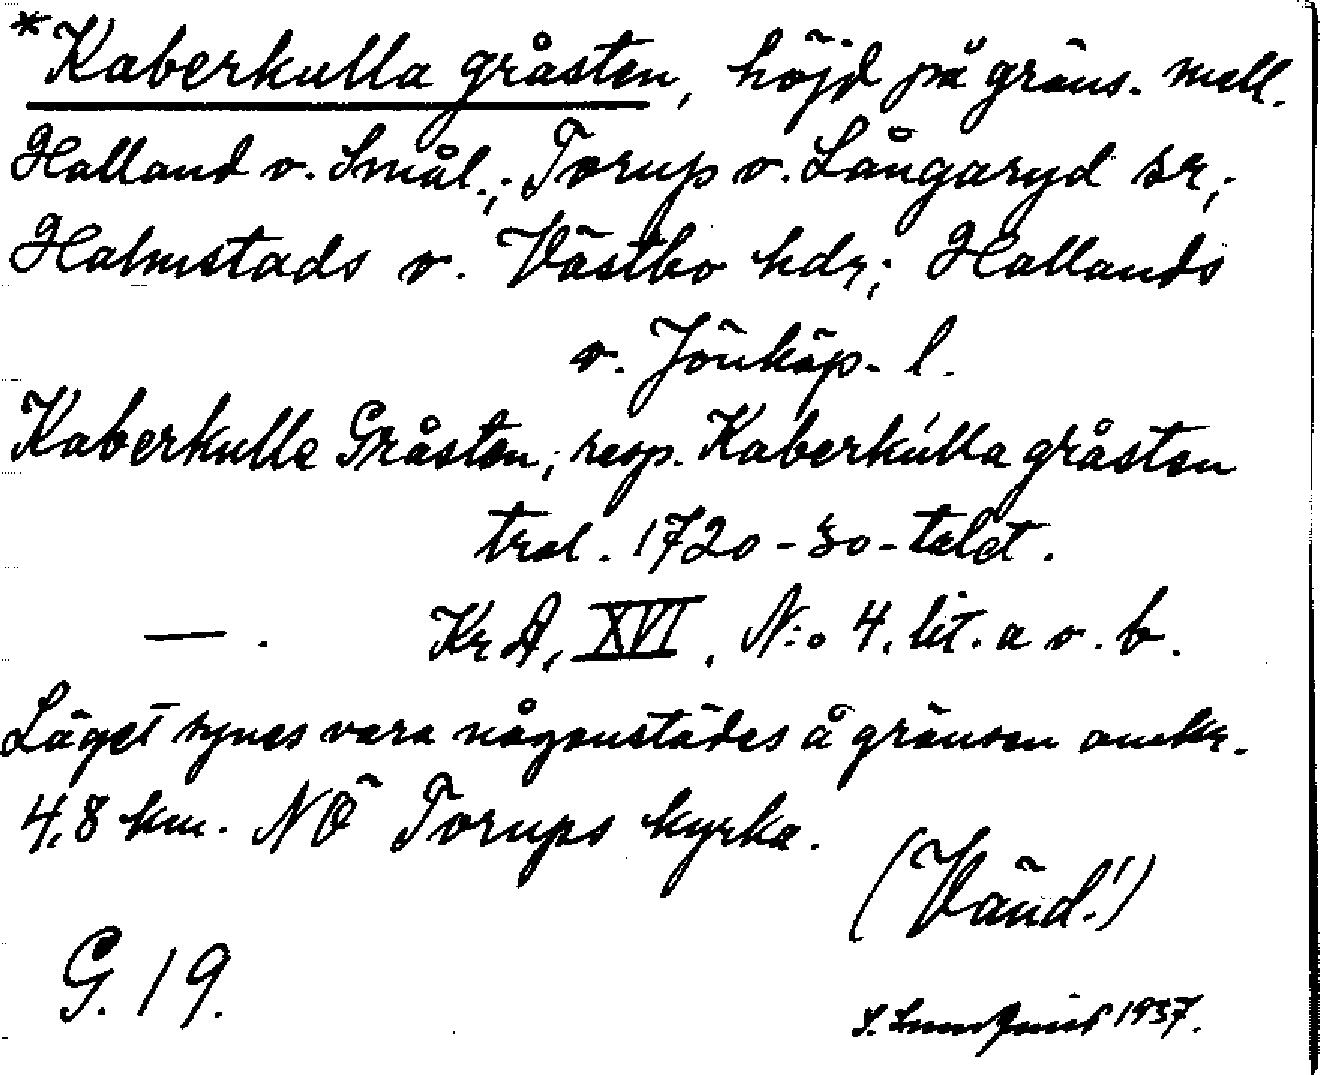 *Kaberkulla gråsten, höjd på gräns. mell.
Halland o. Smål.; Torup o. Långaryd sr;
Halmstads o. Västbo hdr; Hallands
o. Jönköp. l.
Kaberkulle Gråsten, resp. Kaberkulla gråsten
trol. 1720-30-talet.
— . KrA, XVI, N:o 4. lit. a o. b.
Läget synes vara någonstädes å gränsen omkr.
4,8 km. NÖ Torups kyrka.
(Vänd!)
G. 19.
1937.